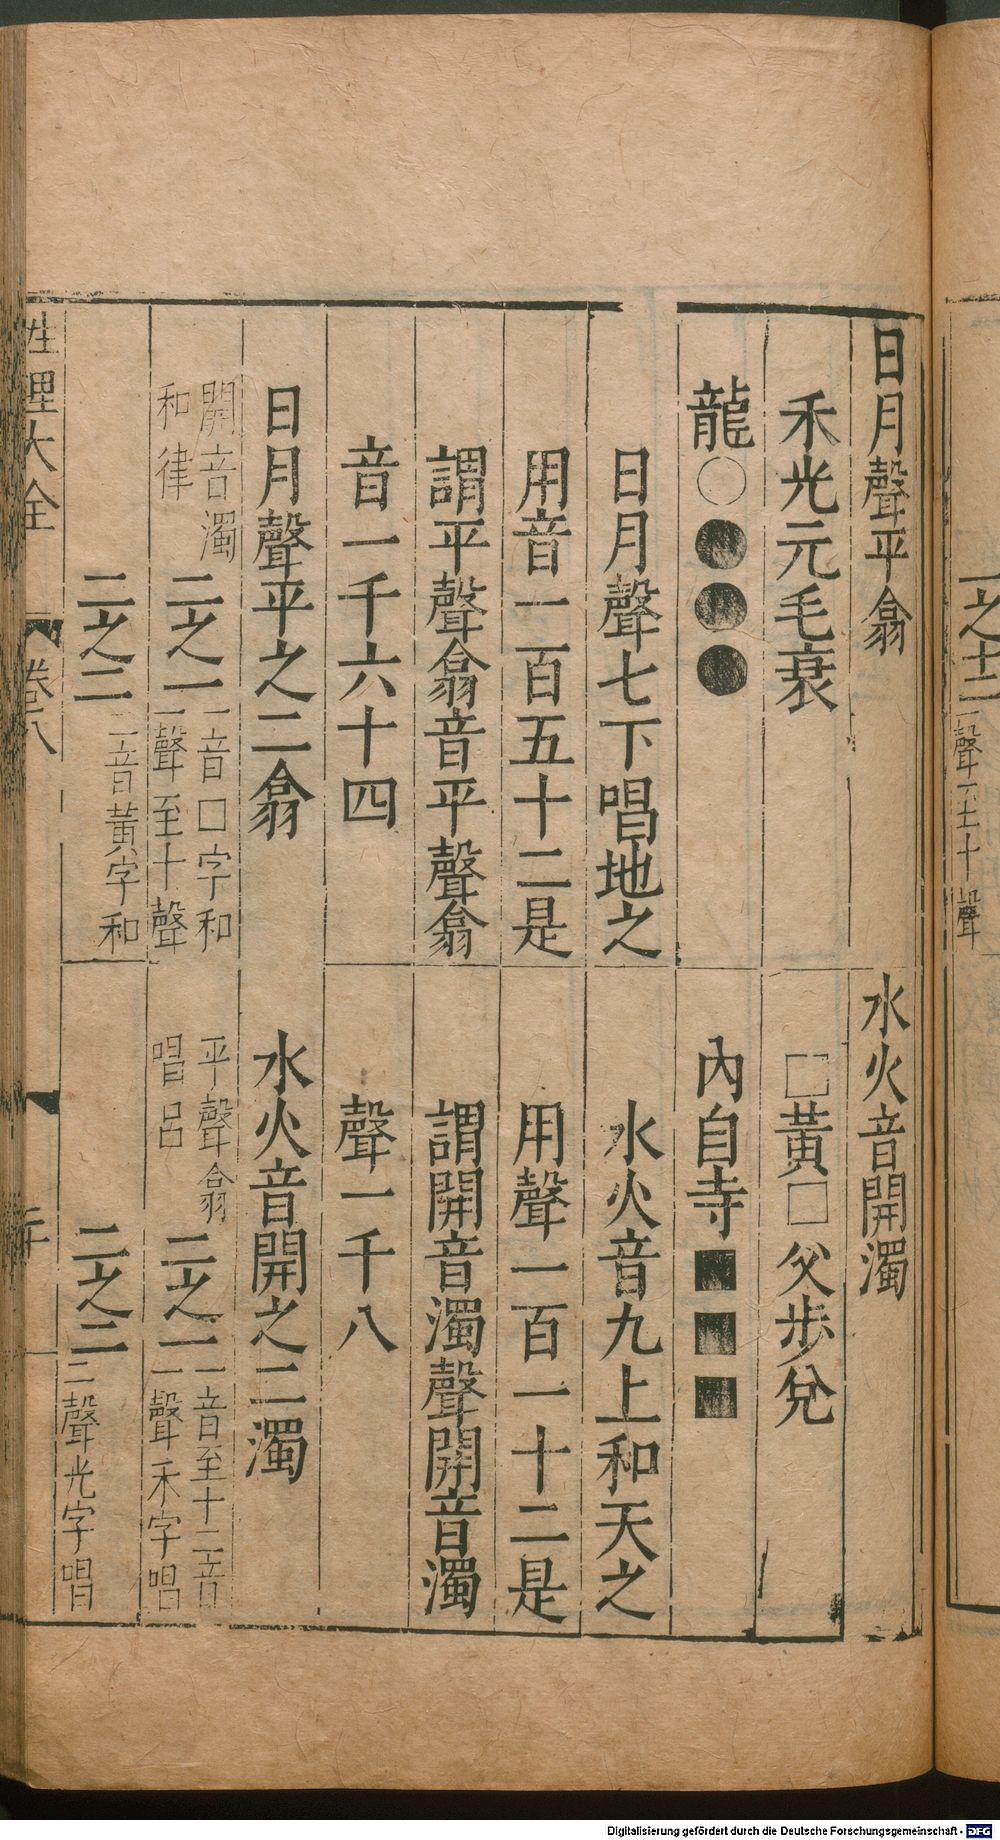 日月聲平翕
禾光元毛衰
龍○●●●
日月聲七下唱地之
用音一百五十二是
謂平聲翕音平聲翕
音一千六十四
日月聲平之二翕
開音濁
和律
二之一
一音口字和
一聲至十聲
二之二
二音黃字和
水火音開濁
□黃□父步兌
內自寺■■■
水火音九上和天之
用聲一百一十二是
謂開音濁聲開音濁
聲一千八
水火音開之二濁
平聲翕
唱呂
二之一
一音至十二音
一聲禾字唱
二之二
二聲光字唱
性理大全
卷八
聲
十聲
Digitalisierung gefördert durch die Deutsche Forschungsgemeinschaft - DFG